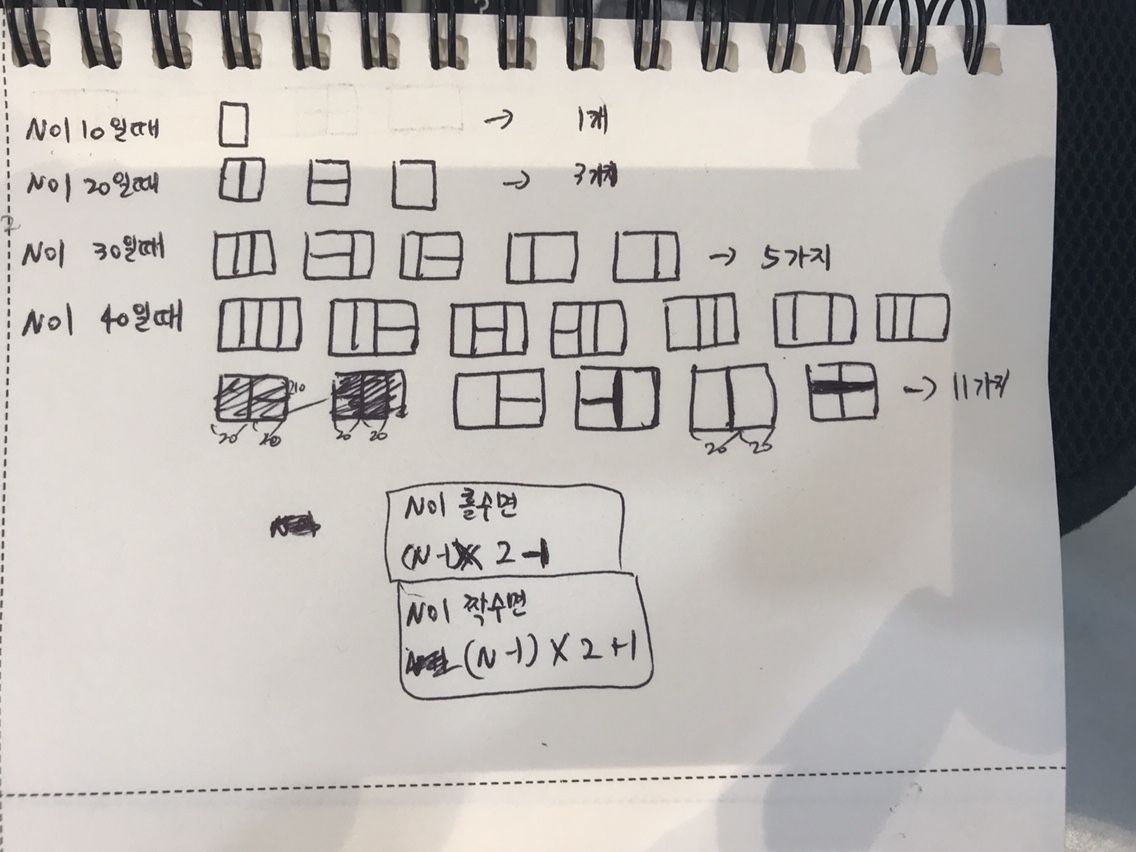 N이 10일때 → 1개
N이 20일때 → 3가지
N이 30일때 → 5가지
N이 40일때
210
20 20 20 20 20 20 → 11가지
N이 홀수면
(N-1)X 2 -1
N이 짝수면
(N-1) X 2 +1